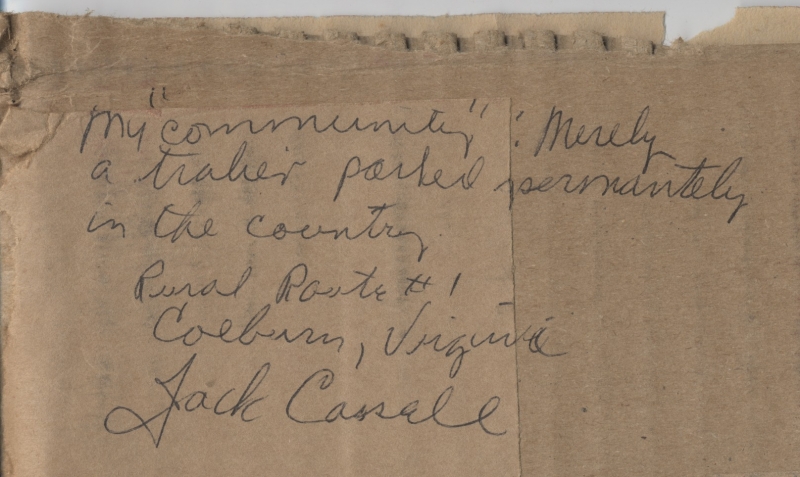 My "community": Merely
a trailer parked permantely
in the country.
Rural Route #1
Coeburn, Virginia
Jack Cassell